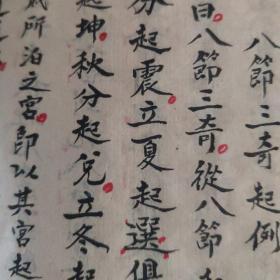 八節三奇起例
曰八節三奇從八節
分起震立夏起選俱
起坤秋分起兌立冬起
所泊之宮即以其宮起